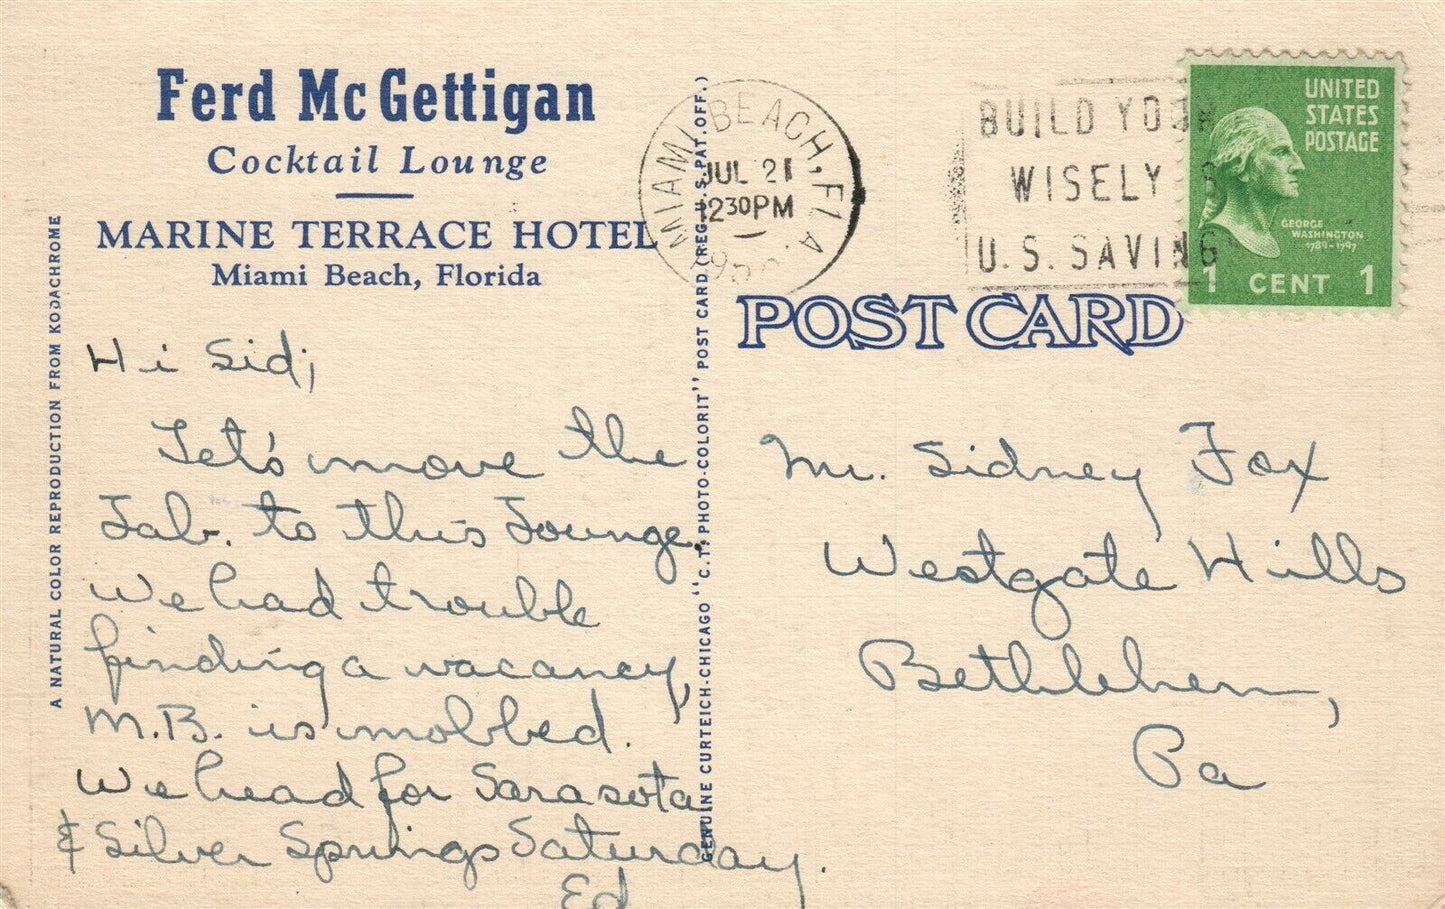 Ferd McGettigan
Cocktail Lounge
MARINE TERRACE HOTEL
Miami Beach, Florida
Hi Sid;
Let's move the
Lab. to this Lounge.
We had trouble
finding a vacancy,
M.B. is mobbed.
We head for Sarasota
& Silver Springs Saturday.
Ed
A NATURAL COLOR REPRODUCTION FROM KODACHROME
GENUINE CURTEICH-CHICAGO "C.T. PHOTO-COLORIT" POST CARD (REG. U.S. PAT. OFF.)
MIAMI BEACH, FLA
JUL 21
1230PM
BUILD YOUR
WISELY
U.S. SAVING
UNITED
STATES
POSTAGE
GEORGE
WASHINGTON
1789-1797
1 CENT 1
POST CARD
Mr. Sidney Fox
Westgate Hills
Bethlehem,
Pa